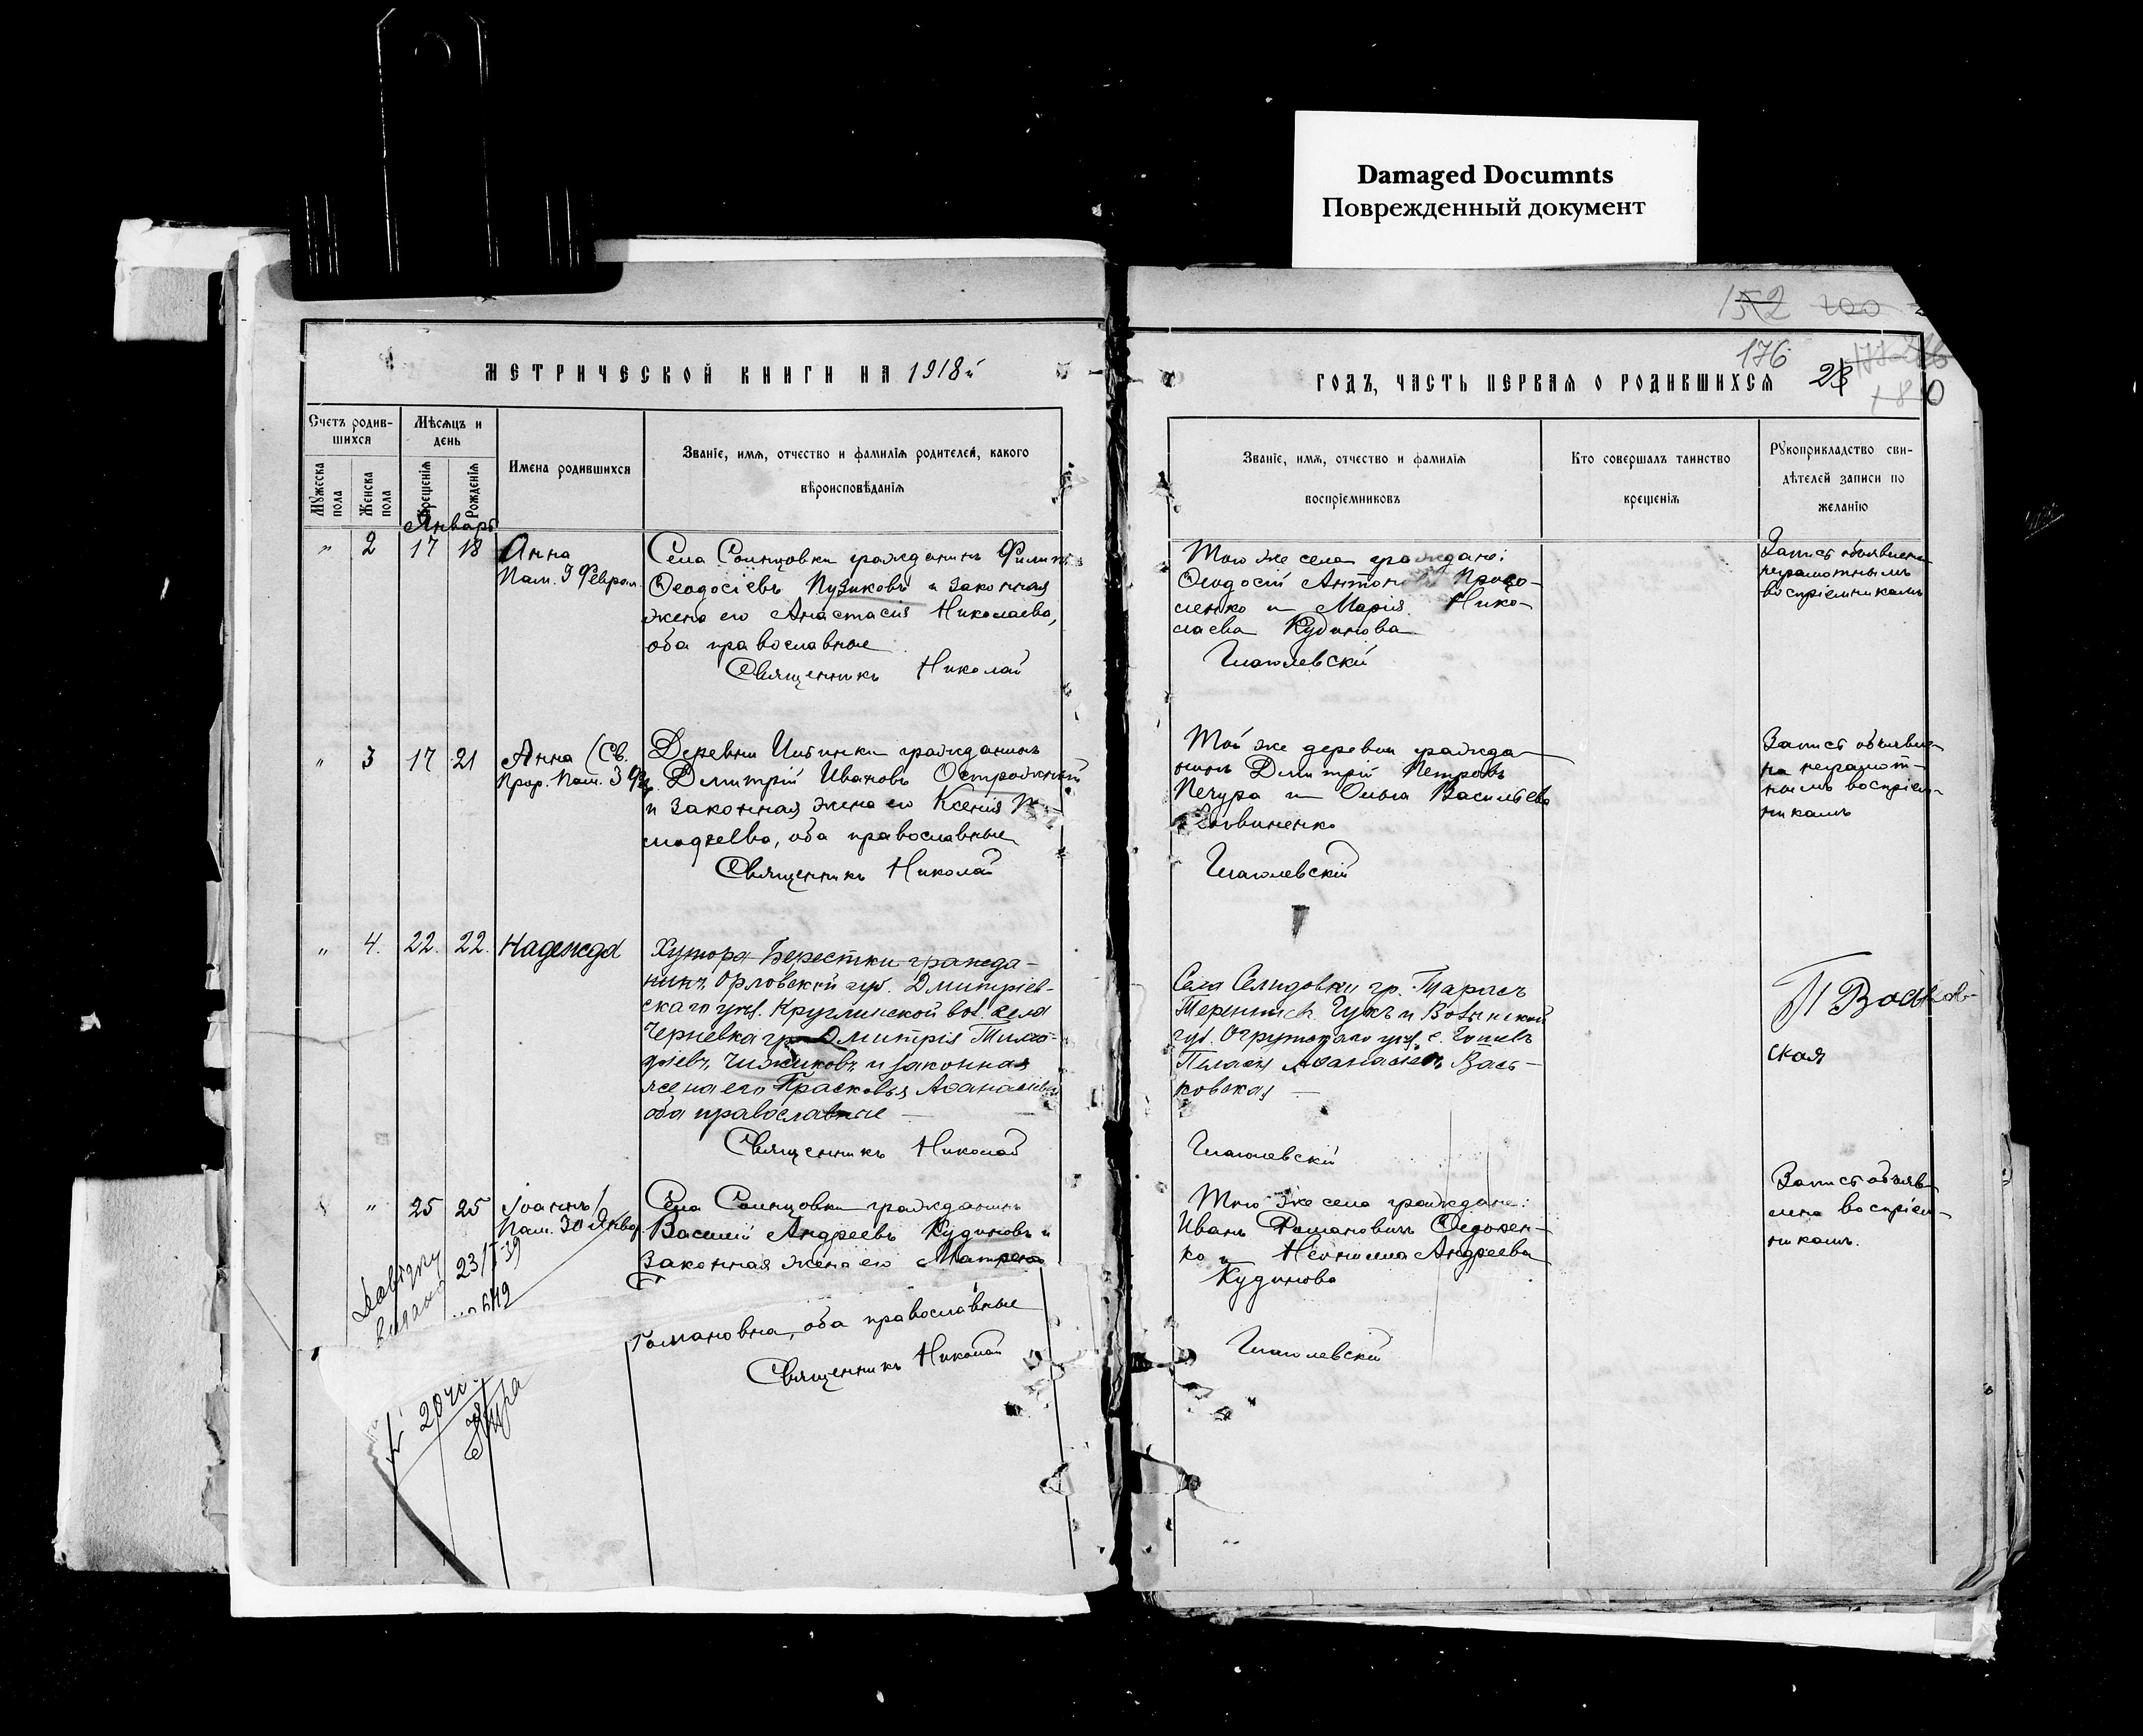 Damaged Documnts
Поврежденный документ
152 200
176
МЕТРИЧЕСКОЙ КНИГИ НА 1918й
ГОДЪ, ЧАСТЬ ПЕРВАЯ О РОДИВШИХСЯ
Счетъ родив-
шихся
Мѣсяцъ и
день
Мужеска
пола
Женска
пола
Крещенія
Рожденія
Имена родившихся
Званіе, имя, отчество и фамилія родителей, какого
вѣроисповѣданія
Званіе, имя, отчество и фамилія
воспріемниковъ
Кто совершалъ таинство
крещенія
Рукоприкладство сви-
дѣтелей записи по
желанію
Январь
" 2 17 18 Анна
Пам. 3 Феврал.
Села Солнцовки гражданинъ Филиппъ
Ѳеодосіевъ Пузиковъ и законная
жена его Анастасія Николаева,
оба православные
Священникъ Николай
Того же села граждане:
Ѳеодосій
ленко и Марія Нико-
лаева Кудинова
Глаголевскій
Запись объявлена
неграмотнымъ
воспріемникамъ
" 3 17 21 Анна (Св.
Прор. Пам. 3 Фев.
Деревни гражданинъ
Дмитрій Ивановъ
и законная жена его Ксенія
оба православные
Священникъ Николай
Той же деревни гражда-
нинъ Дмитрій Петровъ
Печура и Ольга Васильева
Глаголевскій
Запись объявле-
на неграмот-
нымъ воспріем-
никамъ
" 4. 22. 22. Надежда
Хутора Берестки гражда-
нинъ Орловской губ. Дмитріев-
скаго уѣз. Круглинской вол. села
Черневка гр. Дмитрія Тимо-
фіевъ Чижиковъ и законная
жена его Прасковья Аѳанасіева
оба православные
Священникъ Николай
Села Селидовки гр. Тарасъ
Терентьев. Чукъ и Волынской
губ.
Пелагія Аѳанасіев. Вась-
ковская
Глаголевскій
П Васьков-
ская
" 25 25 Іоаннъ
Пам. 30 Январ.
Села Солнцовки гражданинъ
Василій Андреевъ Кудиновъ и
законная жена его Матрена
Романовна, оба православные
Священникъ Николай
Того же села граждане:
Иванъ Романовичъ Ѳедорен-
ко и Неонилла Андреева
Кудинова
Глаголевскій
Запись объяв-
лена воспріем-
никамъ.